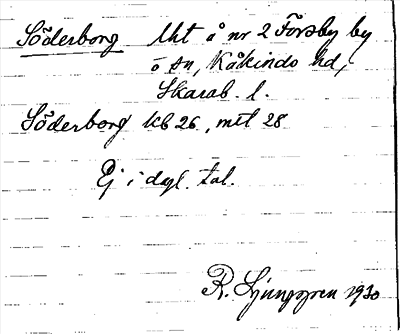 Söderborg Uht å nr 2 Forsby by
o sn, Kåkinds hd,
Skarab. l.
Söderborg kb 26, mtl 28
Ej i dagl. tal.
R. Ljunggren 1930